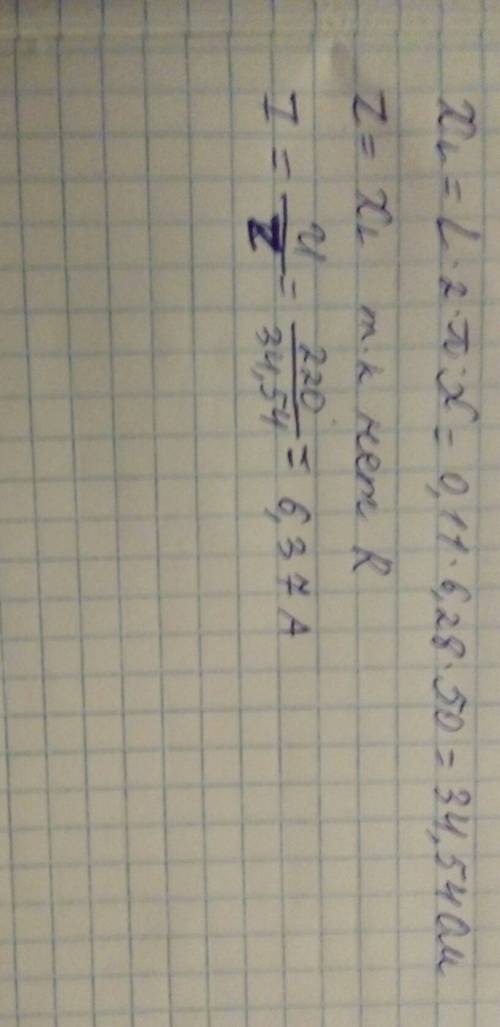 X_L = L · 2 · π · f = 0,11 · 6,28 · 50 = 34,54 Ом
Z = X_L т.к нет R
I = U/Z = 220/34,54 = 6,37 А